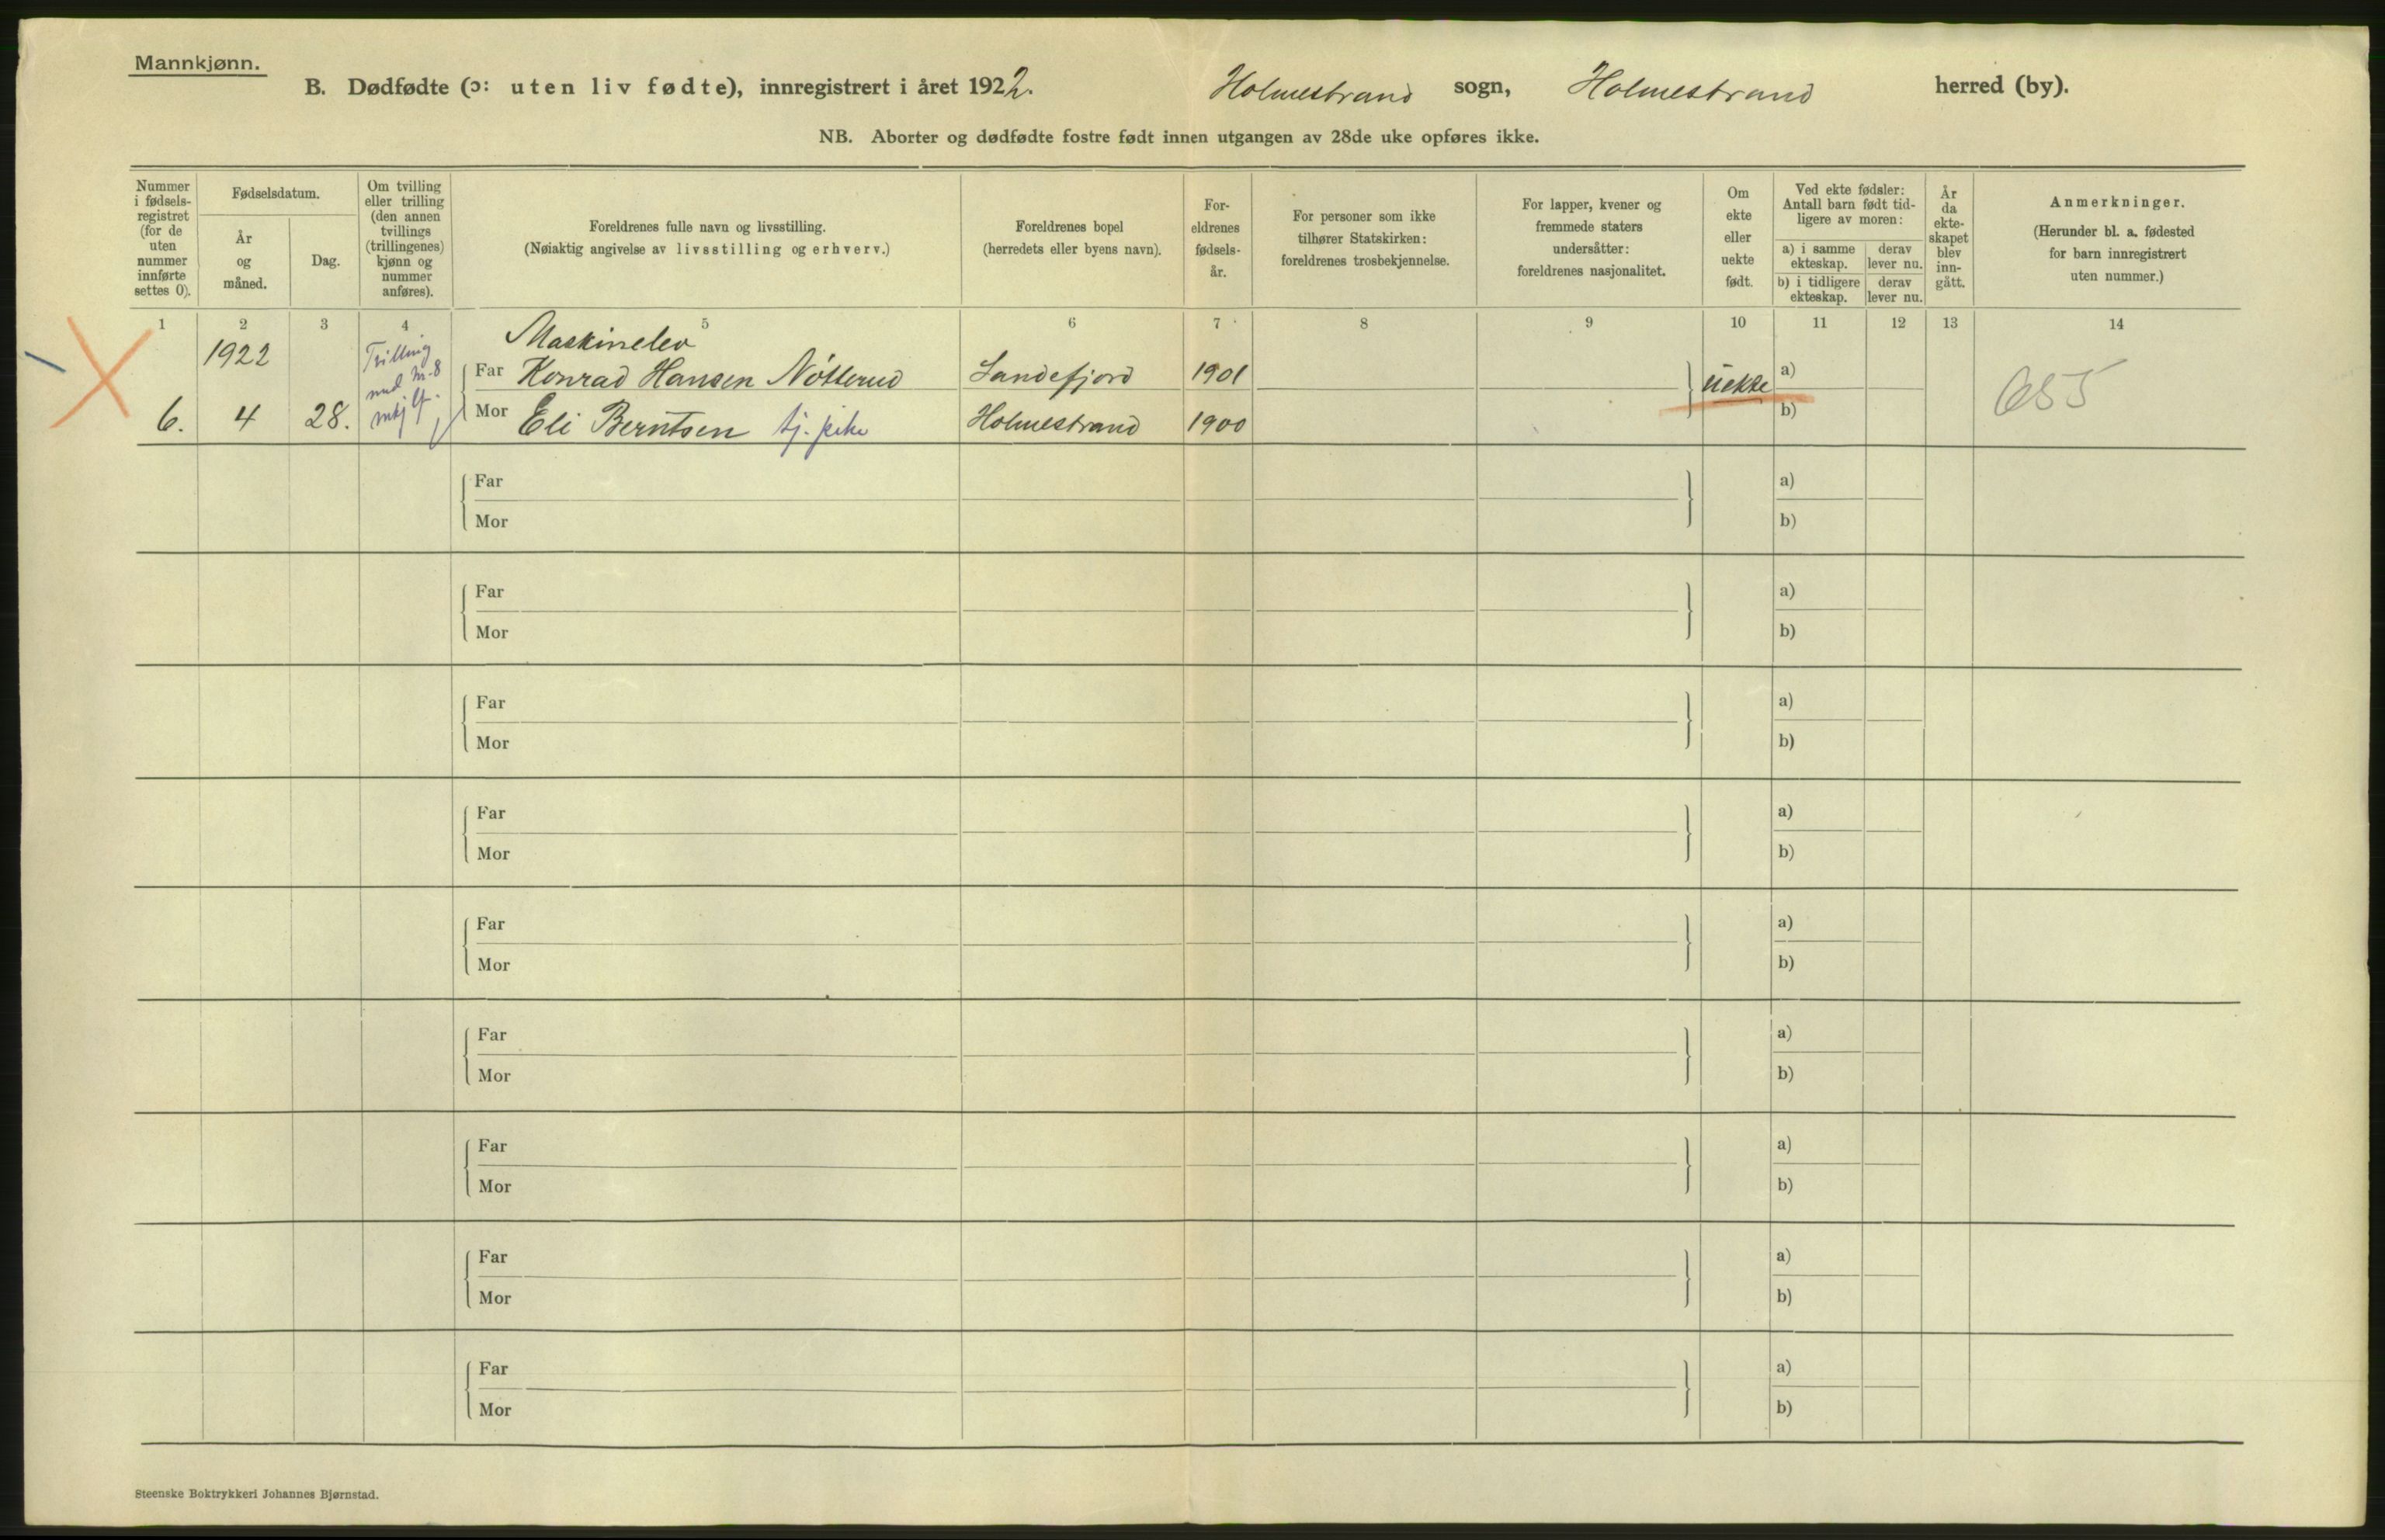 Mannkjønn.
B. Dødfødte (ɔ: uten liv fødte), innregistrert i året 1922. Holmestrand sogn, Holmestrand herred (by).
NB. Aborter og dødfødte fostre født innen utgangen av 28de uke opføres ikke.
Nummer i fødsels-registret (for de uten nummer innførte settes 0).
Fødselsdatum.
År og måned.
Dag.
Om tvilling eller trilling (den annen tvillings (trillingenes) kjønn og nummer anføres).
Foreldrenes fulle navn og livsstilling.
(Nøiaktig angivelse av livsstilling og erhverv.)
Foreldrenes bopel
(herredets eller byens navn).
For-eldrenes fødsels-år.
For personer som ikke tilhører Statskirken: foreldrenes trosbekjennelse.
For lapper, kvener og fremmede staters undersåtter: foreldrenes nasjonalitet.
Om ekte eller uekte født.
Ved ekte fødsler: Antall barn født tid-ligere av moren:
a) i samme ekteskap. derav lever nu.
b) i tidligere ekteskap. derav lever nu.
År da ekte-skapet blev inn-gått.
Anmerkninger.
(Herunder bl. a. fødested for barn innregistrert uten nummer.)
1 2 3 4 5 6 7 8 9 10 11 12 13 14
1922 Trilling Maskinelev
med nr. 8 Far Konrad Hansen Nötterud Sandefjord 1901 uekte a) 655
6. 4 28. Mor Eli Berntsen tj. pike Holmestrand 1900 b)
Far a)
Mor b)
Far a)
Mor b)
Far a)
Mor b)
Far a)
Mor b)
Far a)
Mor b)
Far a)
Mor b)
Far a)
Mor b)
Far a)
Mor b)
Far a)
Mor b)
Steenske Boktrykkeri Johannes Bjørnstad.